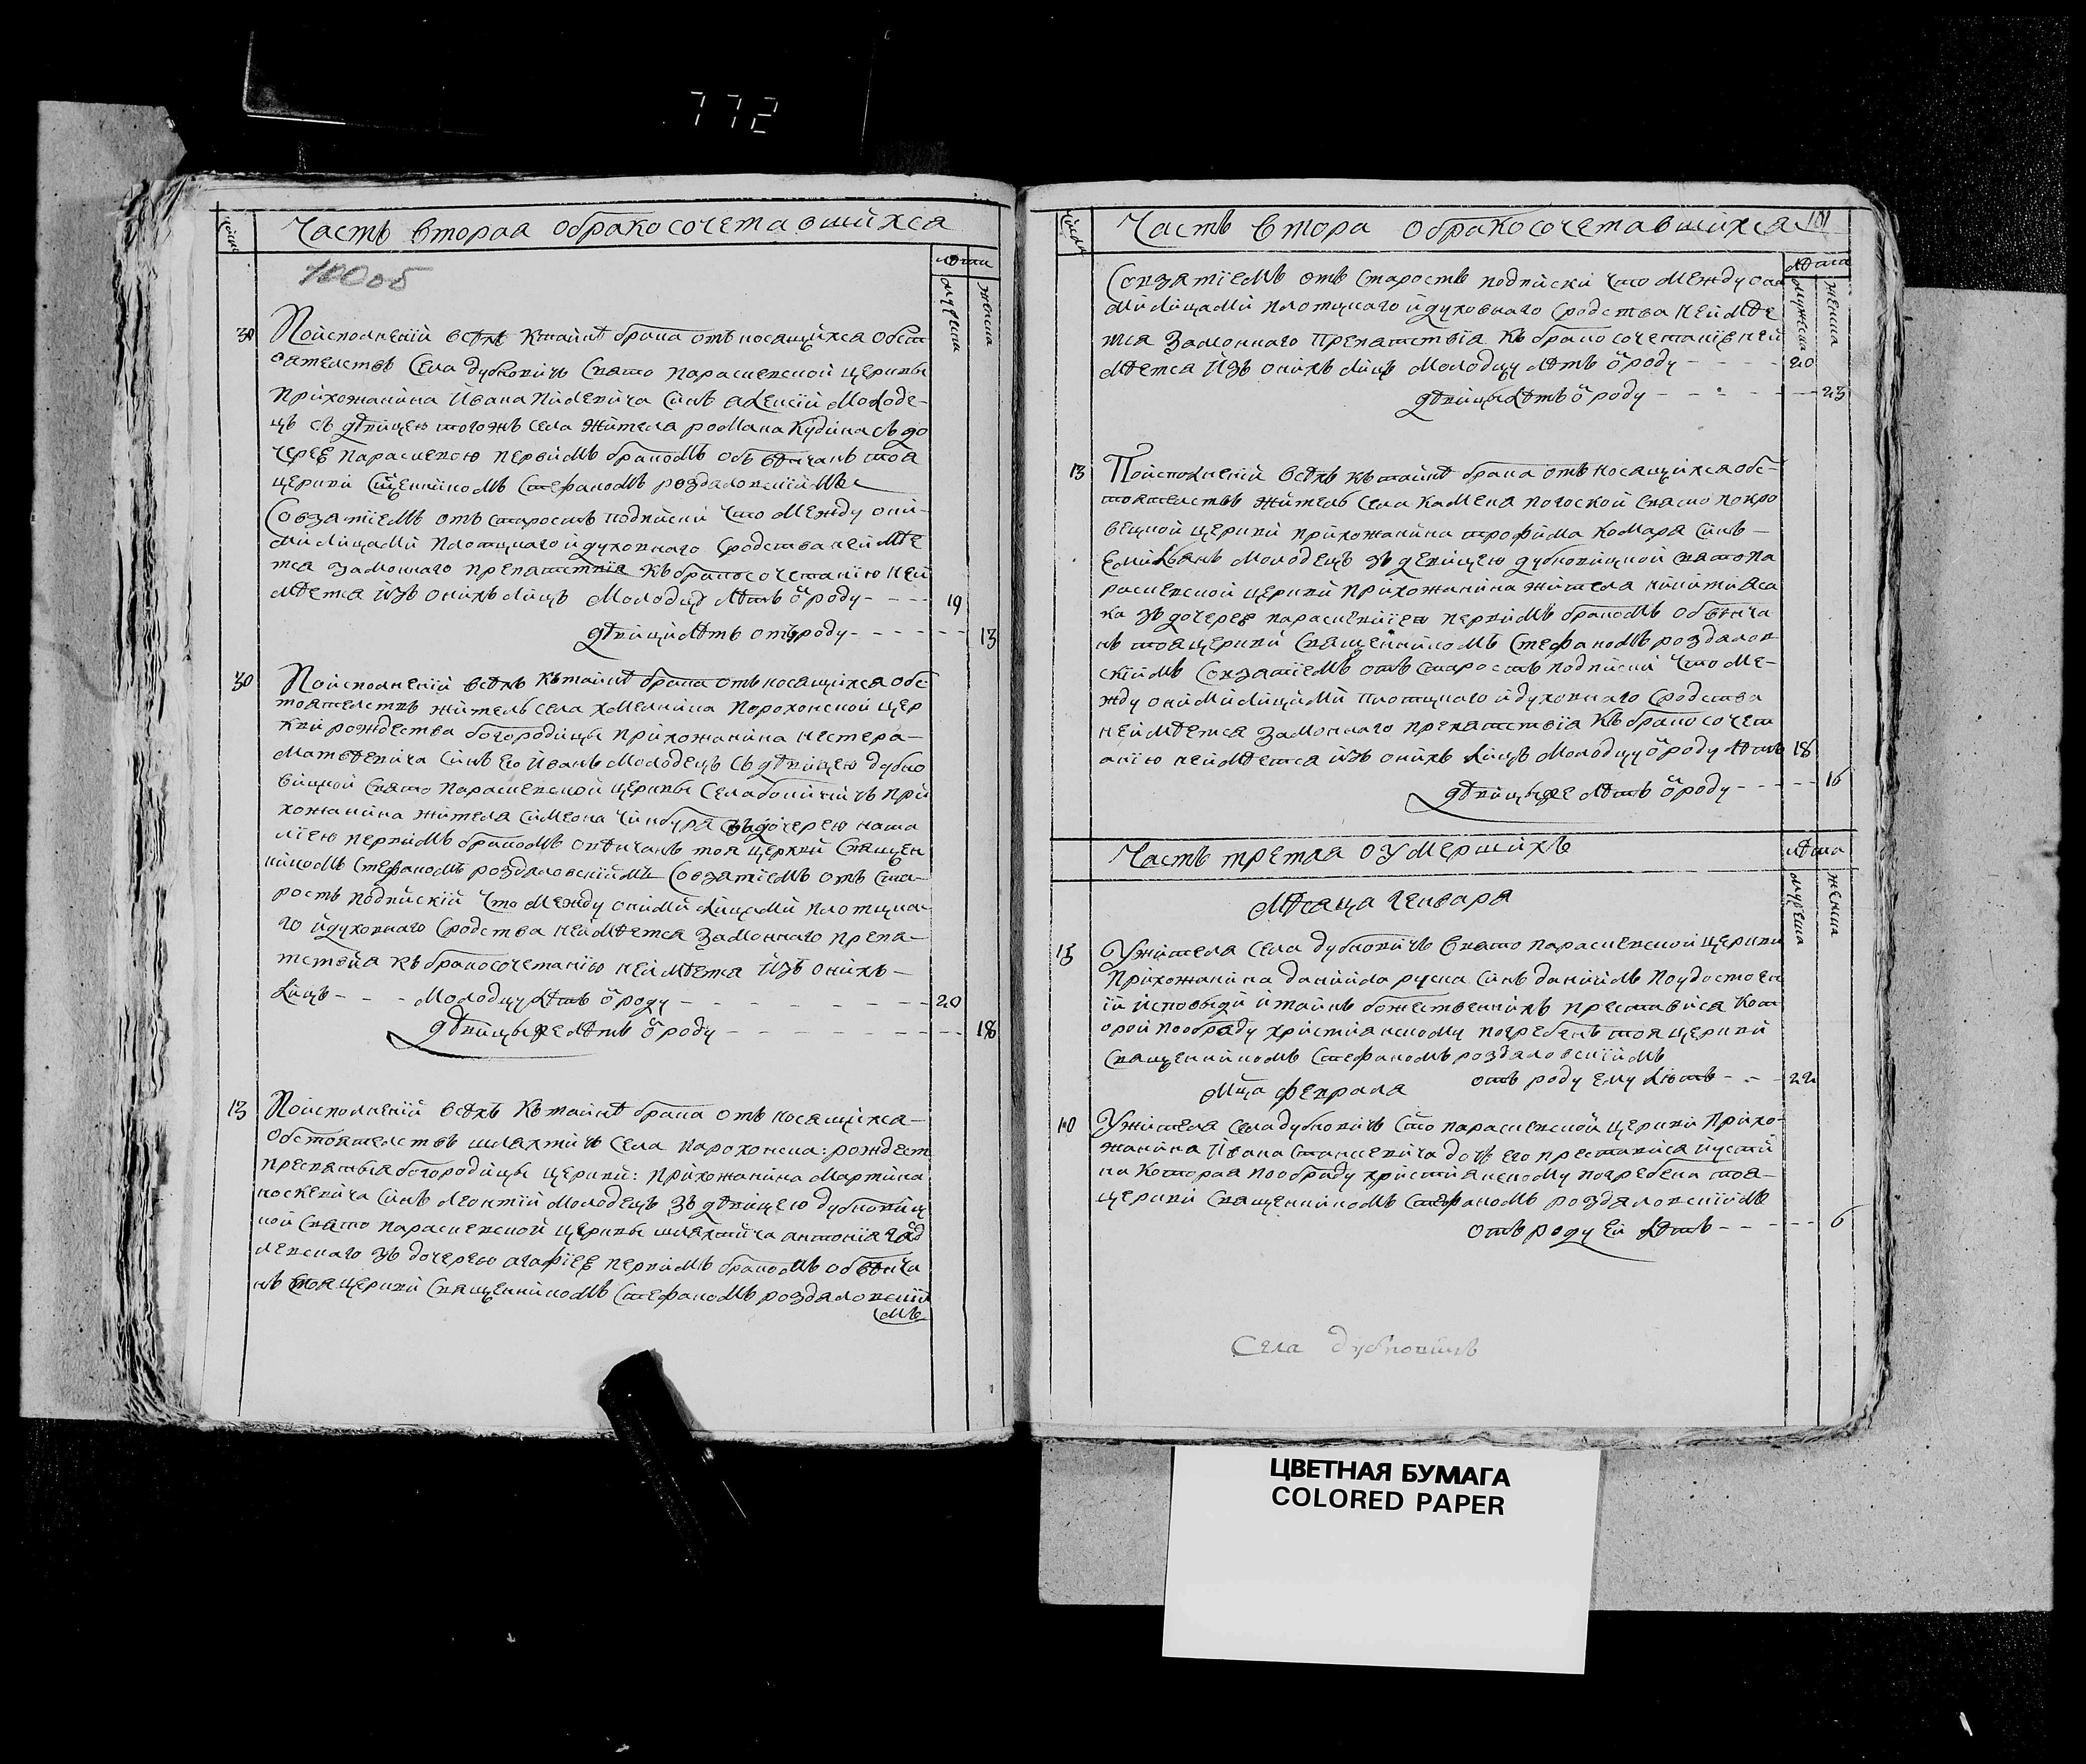 772
числа
Часть вторая обракосочетавшихся
лѣта
100об
мужеска
женска
30
Поисполнении всѣхъ ктайнѣ брака отъ носящихся обст
оятелствъ Села дубновичъ Свято параскевской церквы
прихожанина Ивана пилевича Синъ алексiй молоде-
цъ съ дѣвицею тогожъ села жителя романа Кудина съ до
черею параскевою первимъ бракомъ обвѣнчанъ тоя
церкви Священникомъ Стефаномъ роздяловскiймъ
Совзятiемъ отъ старостъ подписки что между они-
ми лицами плотцкаго идуховного Сродства неимѣе
тся законнаго препятствiя къбракосочетанiю неи
мѣется изъ онихъ лицъ молодцу лѣтъ ѿроду - - - 19
дѣвици лѣтъ отъроду - - - - - 13
30
Поисполнении всѣхъ къ тайнѣ брака отъ носящихся обс-
тоятелствъ жителъ села хмелника порохонской цер
кви рождества богородицы прихожанина нестера -
матвѣевича Синъ его Иванъ молодецъ съ дѣвицею дубно
вицкой свято параскевской церквы Села при
хожанина жителя Симеона дочерею ната
лiею первимъ бракомъ овѣнчанъ тоя церкви Священ
никомъ Стефаномъ роздяловскiймъ Совзятiемъ отъ Ста-
ростъ подпискiй что между оними лицами плотцка-
го идуховного Сродства неимѣется законнаго препя-
тствия къ бракосочетанiю неимѣется изъ онихъ -
лицъ - - - молодцу лѣтъ ѿроду - - - - - - - - 20
дѣвицыже лѣтъ ѿроду - - - - - - - - 18
13
Поисполнении всѣхъ къ тайнѣ брака отъ носящихся -
обстоятелствъ шляхтичъ села парохонска: рождест
пресвятыя богородицы церкви: прихожанина мартина
носкевича Синъ леонтiй молодецъ зъ дѣвицею дубновиц
кой Свято параскевской церквы шляхтича антонiя
левского зъ дочерею агафiею первимъ бракомъ обвѣнча
нъ тоя церкви Священникомъ Стефаномъ роздяловскiй
мъ
числа
Часть втора обракосочетавшихся
101
лѣта
мужеска
женска
Совзятiемъ отъ Старостъ подписки что между они
ми лицами плотцкаго идуховного Сродства неимѣе
тся законнаго препятствiя къ бракосочетанiю неи
мѣется изъ онихъ лицъ молодцу лѣтъ ѿроду - - - 20
дѣвицы лѣтъ ѿроду - - - - - 23
13
Поисполнении всѣхъ къ тайнѣ брака отъ носящихся обс-
тоятелствъ жителъ села каменя погоской свято покро
вецкой церкви прихожанина трофима комара Синъ -
Емилианъ молодецъ зъ девицею дубновицкой свято па
раскевской церкви прихожанина жителя никити
зъ дочерею параскевiiею первимъ бракомъ обвѣнча
нъ тоя церкви Священникомъ Стефаномъ роздялов
скiмъ Совзятiемъ отъ старостъ подписки что ме-
жду оними лицими плотцкаго идуховного Сродства
неимѣется законнаго препятствiя къ бракосочет
анiю неимѣется изъ онихъ лицъ молодцу ѿроду лѣтъ 18
дѣвицыже лѣтъ ѿроду - - - - - 16
Часть третяя оумершихъ
лѣта
мужеска
женска
Мѣсяца генваря
13
Ужителя села дубновичъ Свято параскевской церкви
прихожанина данiила руска Синъ данiилъ поудостоен
iи исповѣди итайнъ божественнихъ преставися кот
орой пообряду христианскому погребенъ тоя церкви
Священникомъ Стефаномъ роздяловскiймъ
отъ роду ему лютъ - - - 22
Мца февраля
10
Ужителя села дубновичъ Сто параскевской церкви прихо-
жанина Ивана Станкевича дочъ его преставися иусти
на Которая пообряду христианскому погребена тоя -
церкви Священникомъ Стефаномъ роздяловскiймъ
отъ роду ей лѣтъ - - - - - 6
Села дубновичъ
ЦВЕТНАЯ БУМАГА
COLORED PAPER